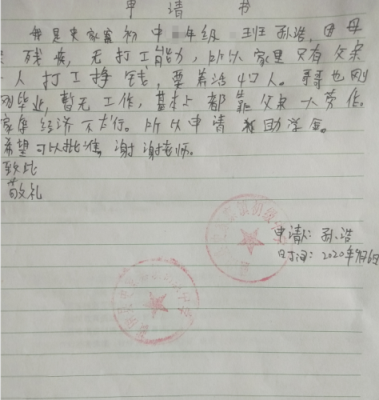 申请书
我是 初中 年级 班孙浩,因母
残疾,无打工能力,所以家里只有父亲
人打工挣钱,要养活4口人。哥哥也刚
刚毕业,暂无工作,基本上都靠父亲一人劳作。
家庭经济不太行。所以申请 助学金。
希望可以批准,谢谢老师。
致此
敬礼
申请人:孙浩
时间:2020年 月6日